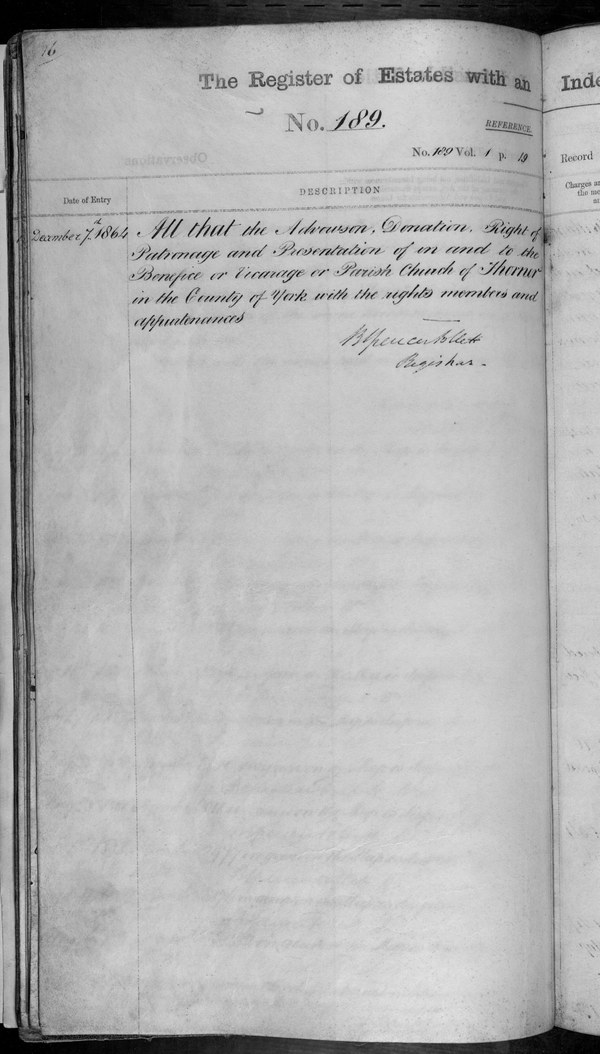 The Register of Estates with an
No. 189.
REFERENCE.
No. 189 Vol. 1 p. 19
DESCRIPTION
Date of Entry
December 7th 1864
All that the Advowson, Donation, Right of
Patronage and Presentation of in and to the
Benefice or Vicarage or Parish Church of Thorner
in the County of York with the rights members and
appurtenances
Registrar
Inde
Record
Charges an
the me